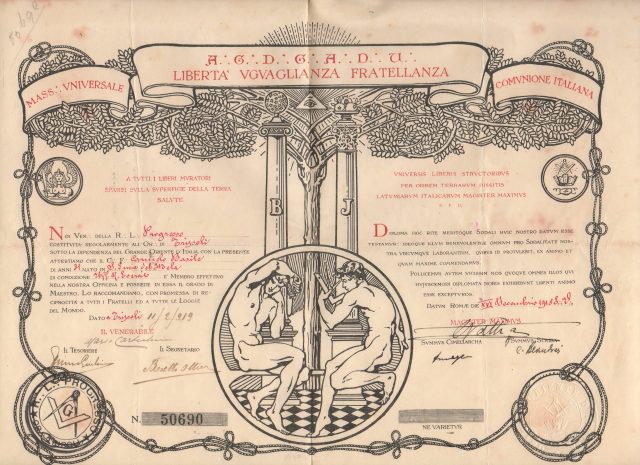 A∴ G∴ D∴ G∴ A∴ D∴ U∴
LIBERTA' VGVAGLIANZA FRATELLANZA
MASS∴ VNIVERSALE
COMVNIONE ITALIANA
A TVTTI I LIBERI MVRATORI
SPARSI SVLLA SVPERFICE DELLA TERRA
SALVTE
VNIVERSIS LIBERIS STRVCTORIBVS
PER ORBEM TERRARVM DISSITIS
LATVMIARVM ITALICARVM MAGISTER MAXIMVS
S. P. D.
B
J
NOI VEN. DELLA R. L. Progresso
COSTITVITA REGOLARMENTE ALL'OR. DI Tripoli
SOTTO LA DIPENDENZA DEL GRANDE ORIENTE D'ITALIA, CON LA PRESENTE
ATTESTIAMO CHE IL C. F.
DI ANNI NATO DI
DI CONDIZIONE È MEMBRO EFFETTIVO
NELLA NOSTRA OFFICINA E POSSIEDE IN ESSA IL GRADO DI
MAESTRO. LO RACCOMANDIAMO, CON PROMESSA DI RE-
CIPROCITÀ A TVTTI I FRATELLI ED A TVTTE LE LOGGIE
DEL MONDO.
DATO A Tripoli 11/2/919
IL VENERABILE
IL TESORIERE
IL SEGRETARIO
DIPLOMA HOC RITE MERITOQVE SODALI HVIC NOSTRO DATVM ESSE
TESTAMVR: IDEOQVE ILLVM BENEVOLENTIAE OMNIVM PRO SODALITATE NOS-
TRA VBICVMQVE LABORANTIVM, QVIBVS ID PROTVLERIT, EX ANIMO ET
QVAM MAXIME COMMENDAMVS.
POLLICEMVR AVTEM VICISSIM NOS QVOQVE OMNES ILLOS QVI
HVIVSCEMODI DIPLOMATA NOBIS EXHIBVERINT LIBENTI ANIMO
ESSE EXCEPTVROS.
DATVM ROMAE DIE XXI Decembrio 1918
MAGISTER MAXIMVS
SVMMVS CIMELIARCHA
SVMMVS SCRIBA
N. 50690
NE VARIETVR
G